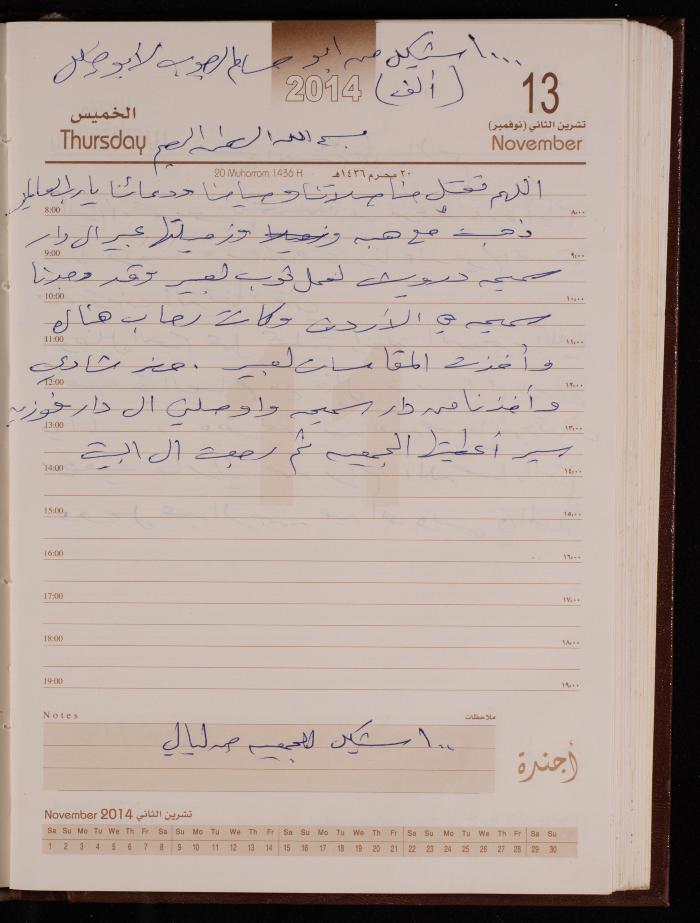 ١٠٠٠ شيكل من ابو حسام الصوب لابو
(ألف)
2014
13
الخميس
Thursday
تشرين الثاني (نوفمبر)
November
بسم الله الرحمن الرحيم
20 Muharram 1436 H
٢٠ محرم ١٤٣٦هـ
اللهم تقبل منا صلاتنا وصيامنا ودعائنا يا رب العالمين
8:00 ٨:٠٠
ذهبت مع هبه وزميلتها عبير ال دار
9:00 ٩:٠٠
سميحه درويش لعمل ثوب لعبير وقد وجدنا
10:00 ١٠:٠٠
سميحه في الأردن وكانت رحاب هناك
11:00 ١١:٠٠
وأخذت المقاسات لعبير . حضر شادي
12:00 ١٢:٠٠
وأخذنا من دار سميحه واوصلني ال دار فوزيه
13:00 ١٣:٠٠
سير أعطيتها الجمعيه ثم رجعت ال البيت
14:00 ١٤:٠٠
15:00 ١٥:٠٠
16:00 ١٦:٠٠
17:00 ١٧:٠٠
18:00 ١٨:٠٠
19:00 ١٩:٠٠
Notes ملاحظات
١٠٠ شيكل للجمعيه من ليالي
أجندة
November 2014 تشرين الثاني
Sa Su Mo Tu We Th Fr Sa Su Mo Tu We Th Fr Sa Su Mo Tu We Th Fr Sa Su Mo Tu We Th Fr Sa Su
1 2 3 4 5 6 7 8 9 10 11 12 13 14 15 16 17 18 19 20 21 22 23 24 25 26 27 28 29 30